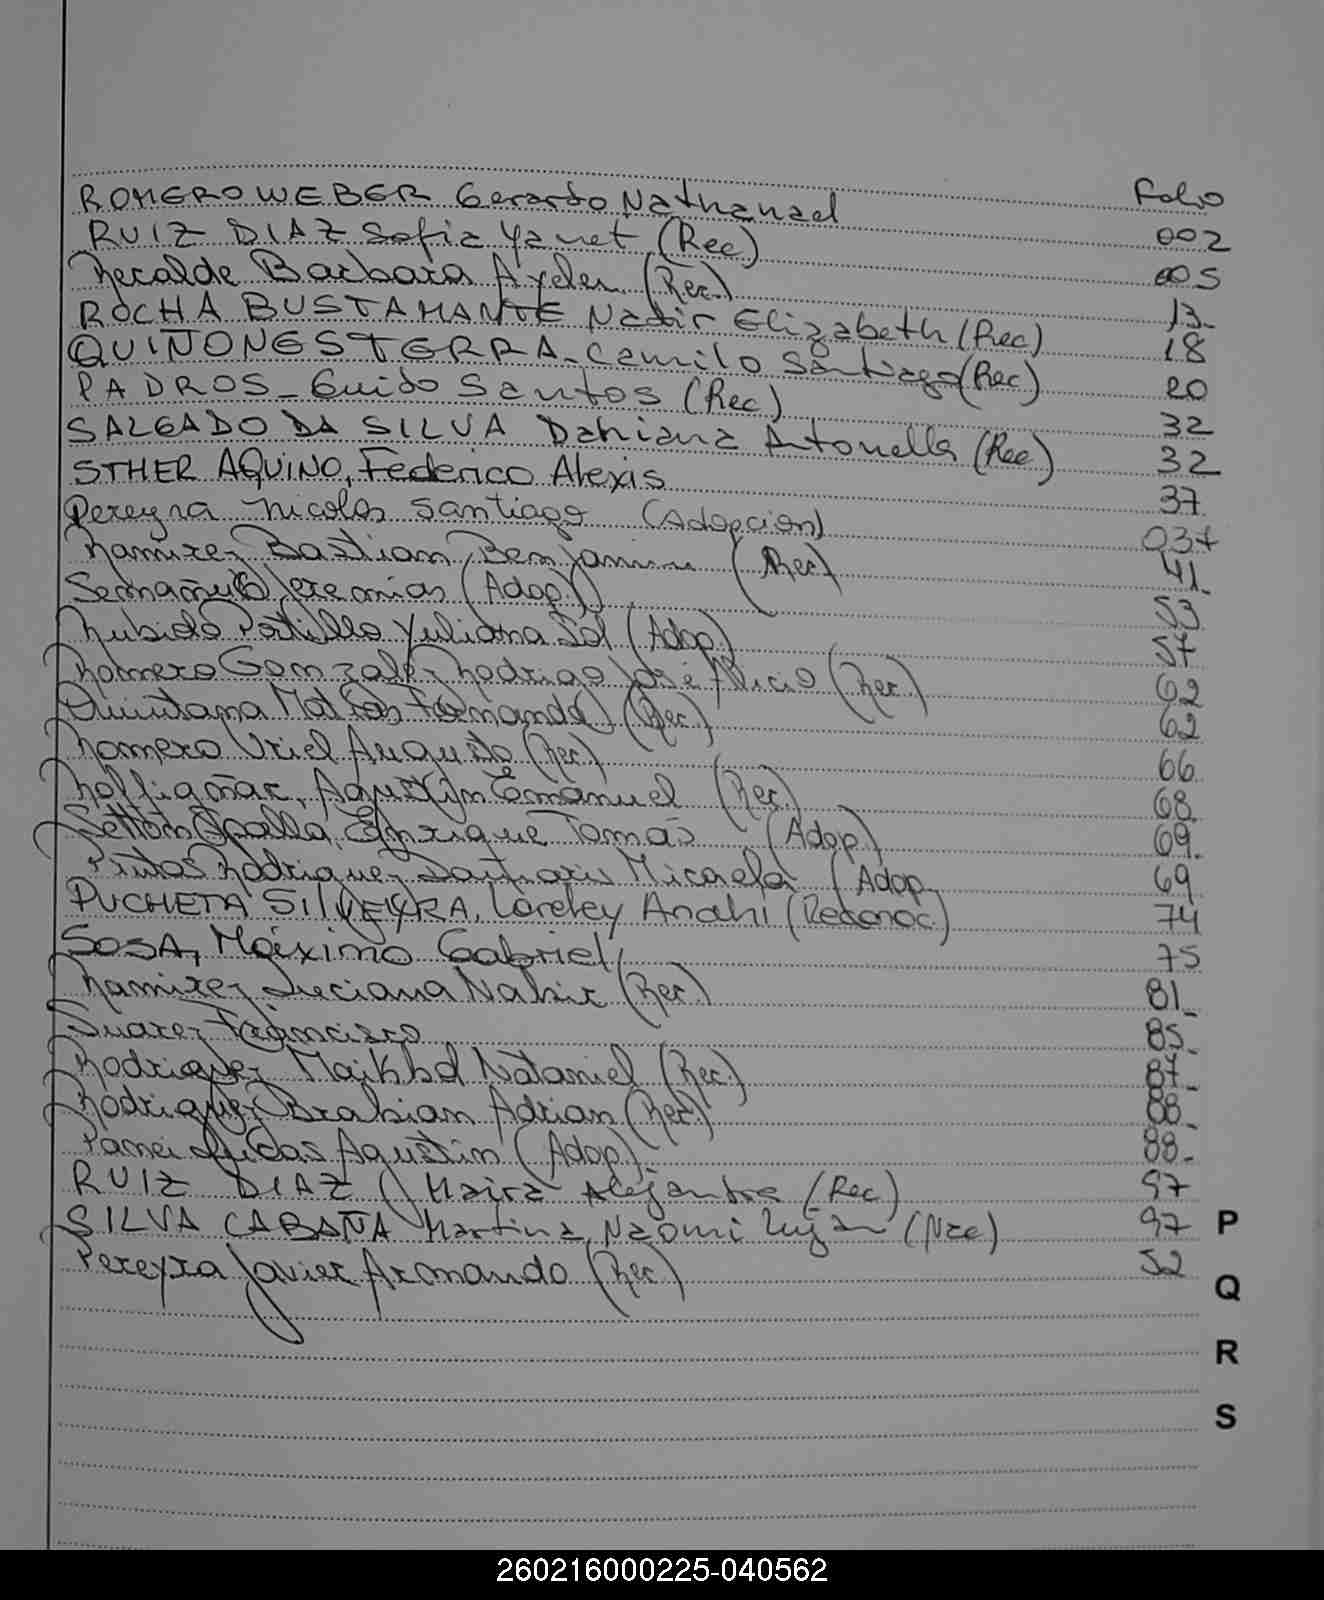 Folio
ROMERO WEBER Gerardo Nathanael 002
RUIZ DIAZ Sofia Yanet (Rec) 005
Recalde Barbara Ayelen (Rec.) 13.
ROCHA BUSTAMANTE Nadir Elizabeth (Rec) 18
QUIÑONES TERRA - Camilo Santiago (Rec.) 20
PADROS - Guido Santos (Rec) 32
SALGADO DA SILVA Dahiana Antonella (Rec) 32
STHER AQUINO, Federico Alexis 37
Pereyra Nicolas Santiago (Adopcion) 037
Ramirez Bastian Benjamin (Rec) 41.
Jeremias (Adop.) 53
Rubido Portillo Yuliana Sol (Adop.) 57
Romero Gonzalez Rodrigo José (Rec.) 62
Quintana Matias Fernando (Rec.) 62
Romero Uriel Augusto (Rec.) 66
Rolfignac, Agustin Emanuel (Rec.) 68.
Settón Spalla, Enrique Tomás (Adop.) 69.
Pintos Rodriguez Micaela (Adop. 69
PUCHETA SILVEYRA, Loreley Anahi (Reconoc.) 74
SOSA, Máximo Gabriel 75
Ramirez Luciana Nahir (Rec.) 81.
Suarez Francisco 85.
Rodriguez Nataniel (Rec.) 87.
Rodriguez Brabian Adrian (Rec.) 88.
Lucas Agustin (Adop). 88.
RUIZ DIAZ Maira Alejandra (Rec) 97
SILVA CABAÑA Martina Naomi Lujan (Nac) 97
Pereyra Javier Armando (Rec.) 52
P
Q
R
S
260216000225-040562